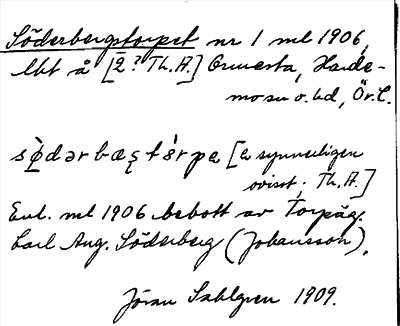 Söderbergstorpet nr 1 ml 1906,
lht å [2? Th.A.] Ormesta, Harde-
mo sn o. hd, Ör. l.
sø̀dərbæʂtɵ̀rpa [a synnerligen
ovisst; Th.A.]
Enl. ml 1906 bebott av Torpäg.
Carl Aug. Söderberg (Johansson).
Jöran Sahlgren 1909.